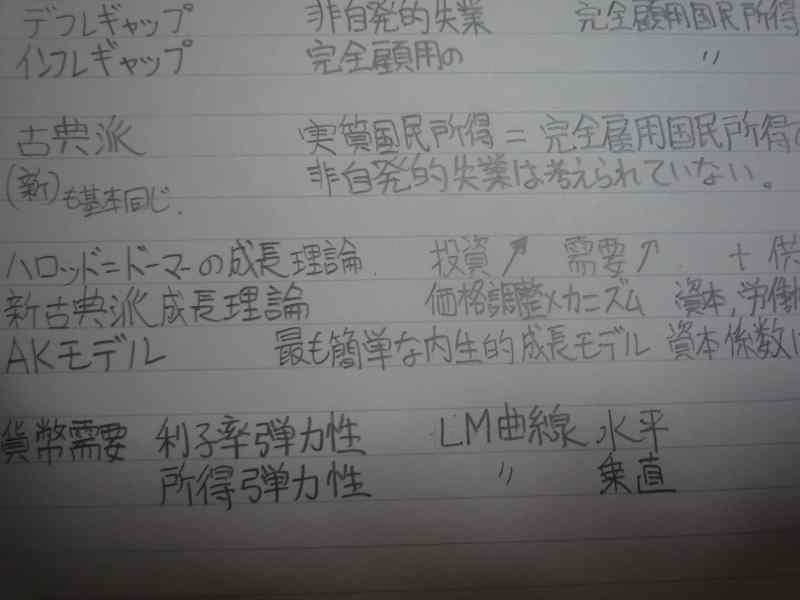 デフレギャップ 非自発的失業 完全雇用国民所得
インフレギャップ 完全雇用の 〃
古典派 実質国民所得 = 完全雇用国民所得
(新)も基本同じ. 非自発的失業は考えられていない。
ハロッド=ドーマーの成長理論. 投資↗ 需要↗ + 供
新古典派成長理論 価格調整メカニズム 資本,労働
AKモデル 最も簡単な内生的成長モデル 資本係数
貨幣需要 利子率弾力性 LM曲線 水平
所得弾力性 〃 垂直